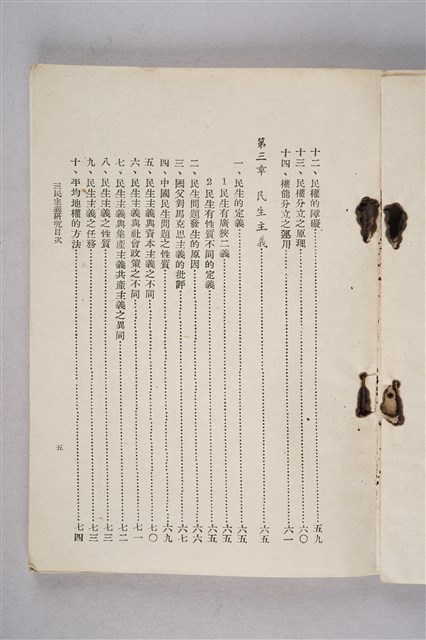 十二、民權的障礙……五九
十三、民權分立之原理……六〇
十四、權能分立之運用……六一
第三章 民生主義……六五
一、民生的定義……六五
1 民生有廣狹二義……六五
2 民生有性質不同的定義……六五
二、民生問題發生的原因……六六
三、國父對馬克思主義的批評……六七
四、中國民生問題之性質……六九
五、民生主義與資本主義之不同……七〇
六、民生主義與社會政策之不同……七一
七、民生主義與集產主義共產主義之異同……七二
八、民生主義之性質……七三
九、民生主義之任務……七三
十、平均地權的方法……七四
三民主義研究目次
五